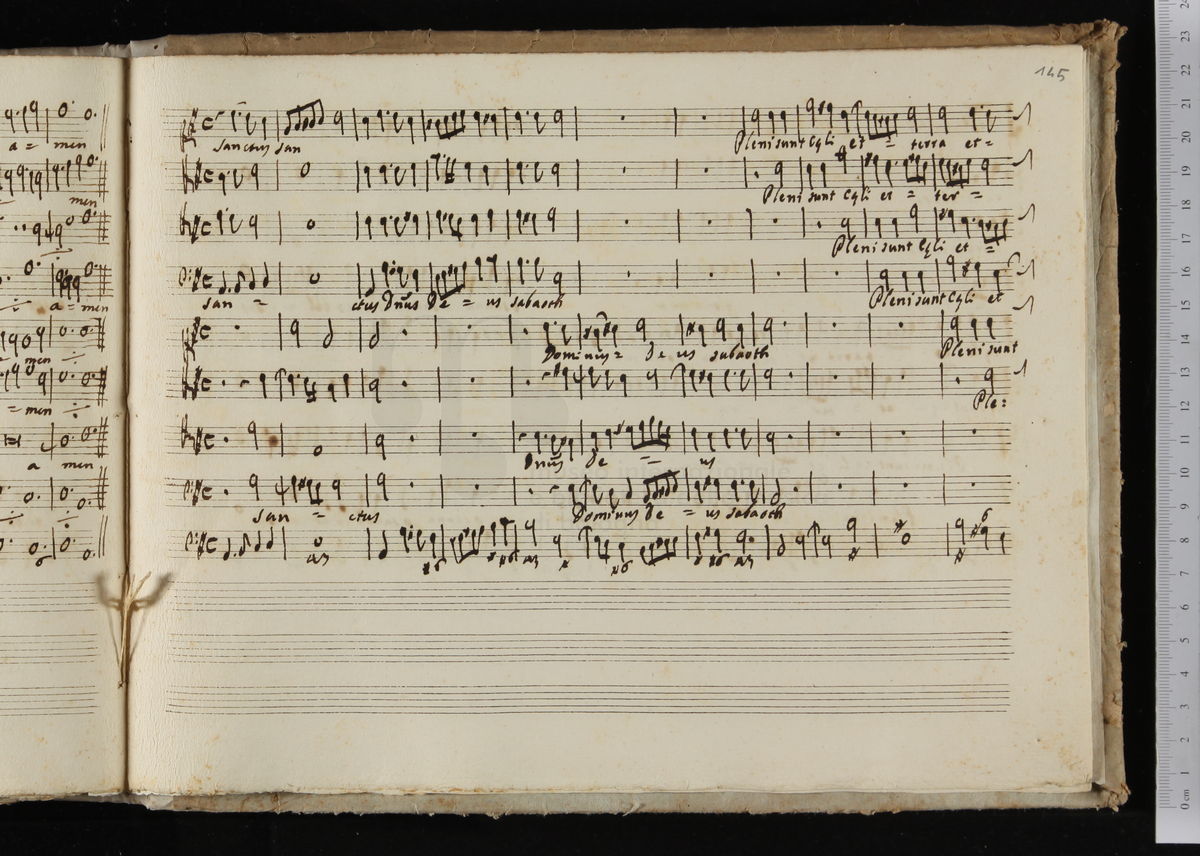 145
a = men
Sanctus san
Pleni sunt Cęli et = terra et =
men
Pleni sunt Cęli et = ter =
Pleni sunt Cęli et =
a = men
san = ctus Dnūs De = us sabaoth
Pleni sunt Cęli et
men
Dominus = De us sabaoth
Pleni sunt
= men
Ple:
a men
Dnūs De = us
San = ctus
Dominus De = us sabaoth
24
23
22
21
20
19
18
17
16
15
14
13
12
11
10
9
8
7
6
5
4
3
2
1
0 cm